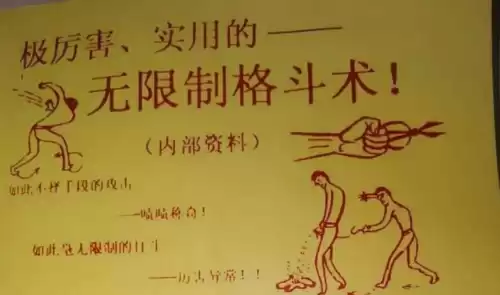 极厉害、实用的——
无限制格斗术！
（内部资料）
如此不择手段的攻击
——啧啧称奇！
如此毫无限制的打斗
——厉害异常！！